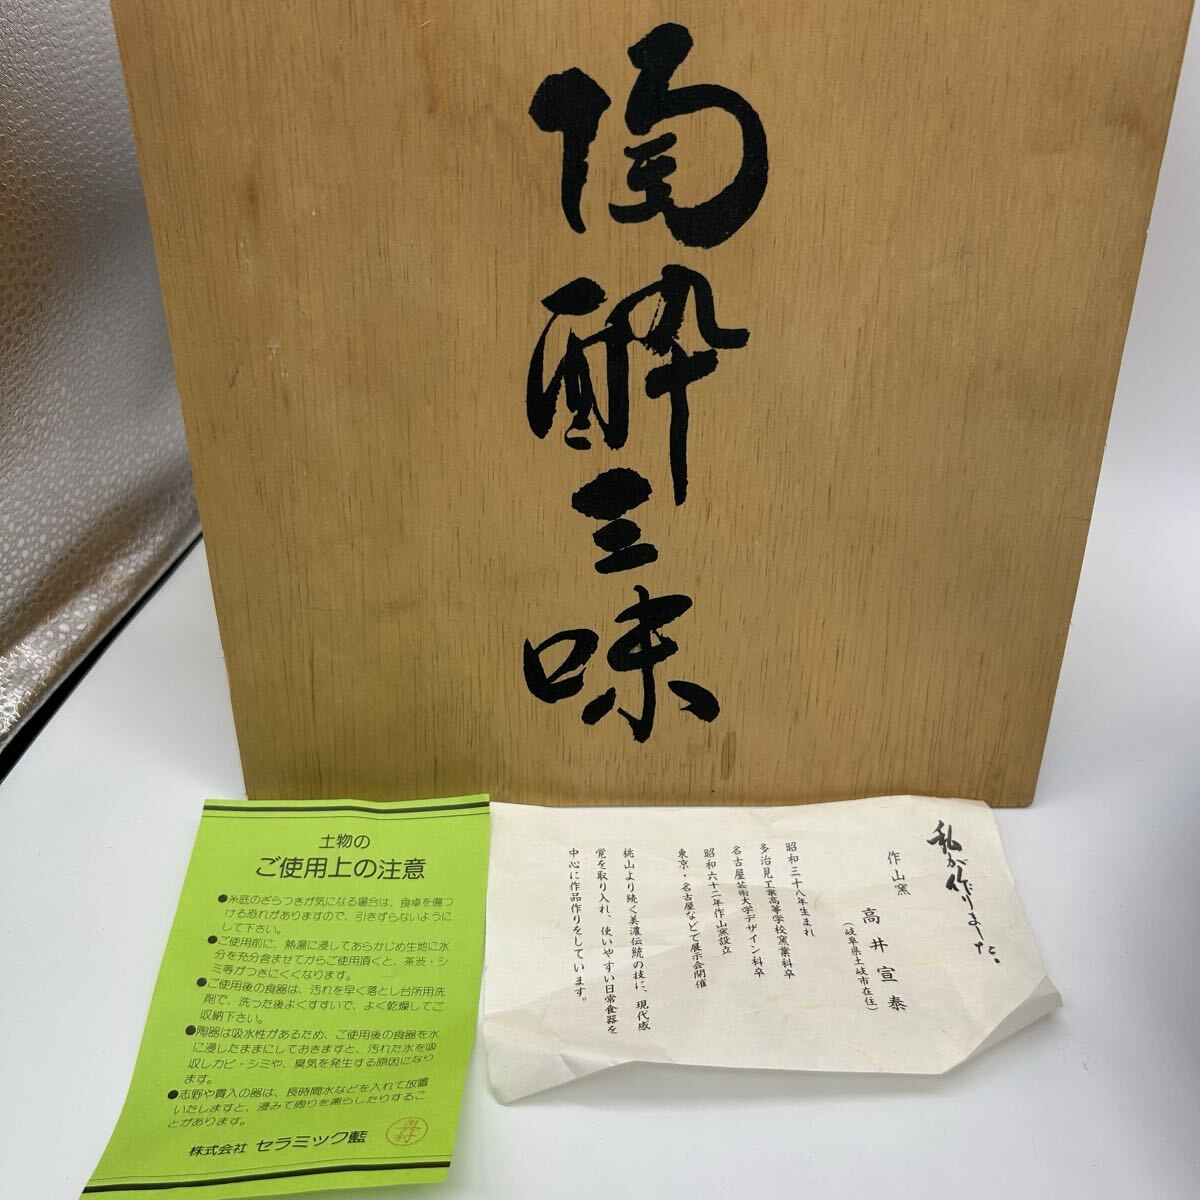 陶酔三味
土物の
ご使用上の注意
●糸底のざらつきが気になる場合は、食卓を傷つ
ける恐れがありますので、引きずらないように
して下さい。
●ご使用前に、熱湯に浸してあらかじめ生地に水
分を充分含ませてからご使用頂くと、茶渋・シ
ミ等がつきにくくなります。
●ご使用後の食器は、汚れを早く落とし台所用洗
剤で、洗った後よくすすいで、よく乾燥してご
収納下さい。
●陶器は吸水性があるため、ご使用後の食器を水
に浸したままにしておきますと、汚れた水を吸
収しカビ・シミや、臭気を発生する原因になり
ます。
●志野や貫入の器は、長時間水などを入れて放置
いたしますと、浸みて周りを濡らしたりするこ
とがあります。
株式会社 セラミック藍
奥村
私が作りました。
作山窯 高井宣泰
(岐阜県土岐市在住)
昭和三十八年生まれ
多治見工業高等学校窯業科卒
名古屋芸術大学デザイン科卒
昭和六十二年作山窯設立
東京・名古屋などで展示会開催
桃山より続く美濃伝統の技に、現代感
覚を取り入れ、使いやすい日常食器を
中心に作品作りをしています。